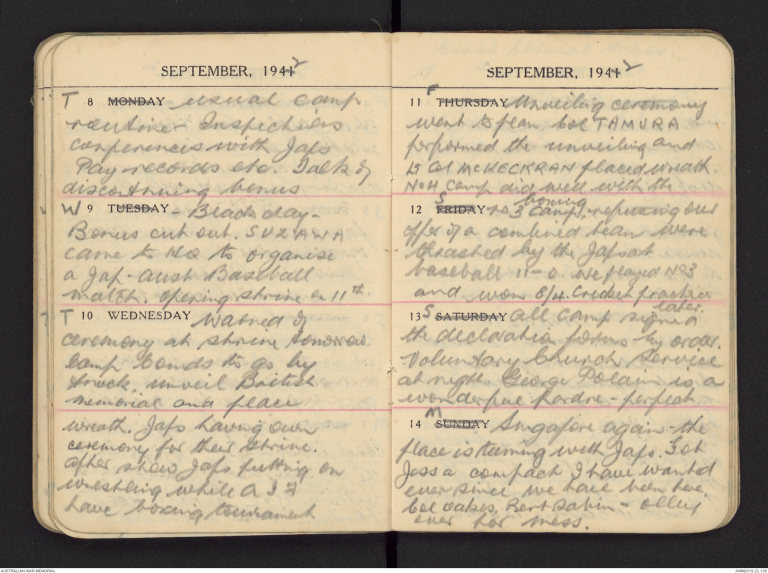 SEPTEMBER, 1942
T 8 MONDAY usual camp
routine - Inspections
conferences with Japs
Pay records etc. Talk of
discontinuing bonus
W 9 TUESDAY - Black day -
Bonus cut out. SUZAWA
came to HQ to organise
a Jap-Aust Baseball
match. Opening shrine on 11th.
T 10 WEDNESDAY Warned of
ceremony at shrine tomorrow
Camp Comds to go by
truck, unveil British
memorial and place
wreath. Japs having own
ceremony for their shrine.
After show Japs putting on
wrestling while A I F
have boxing tournament
SEPTEMBER, 1942
11 F THURSDAY Unveiling ceremony
went to plan, Col TAMURA
performed the unveiling and
Lt Col McKECKRAN placed wreath.
No 4 Camp did well with the
boxing
12 S FRIDAY No 3 Camp, refusing our
offer of a combined team were
thrashed by the Japs at
baseball 11-0. We played No 3
and won 8/4. Cricket practice
later.
13 S SATURDAY All camp signed
the declaration forms by order.
Voluntary Church Service
at night. George Polain is a
wonderful padre - perfect
14 M SUNDAY Singapore again - the
place is teeming with Japs. Got
Joss a compact I have wanted
ever since we have been here
Col Oakes, Bert Sabin - Olley
over for mess.
AUSTRALIAN WAR MEMORIAL